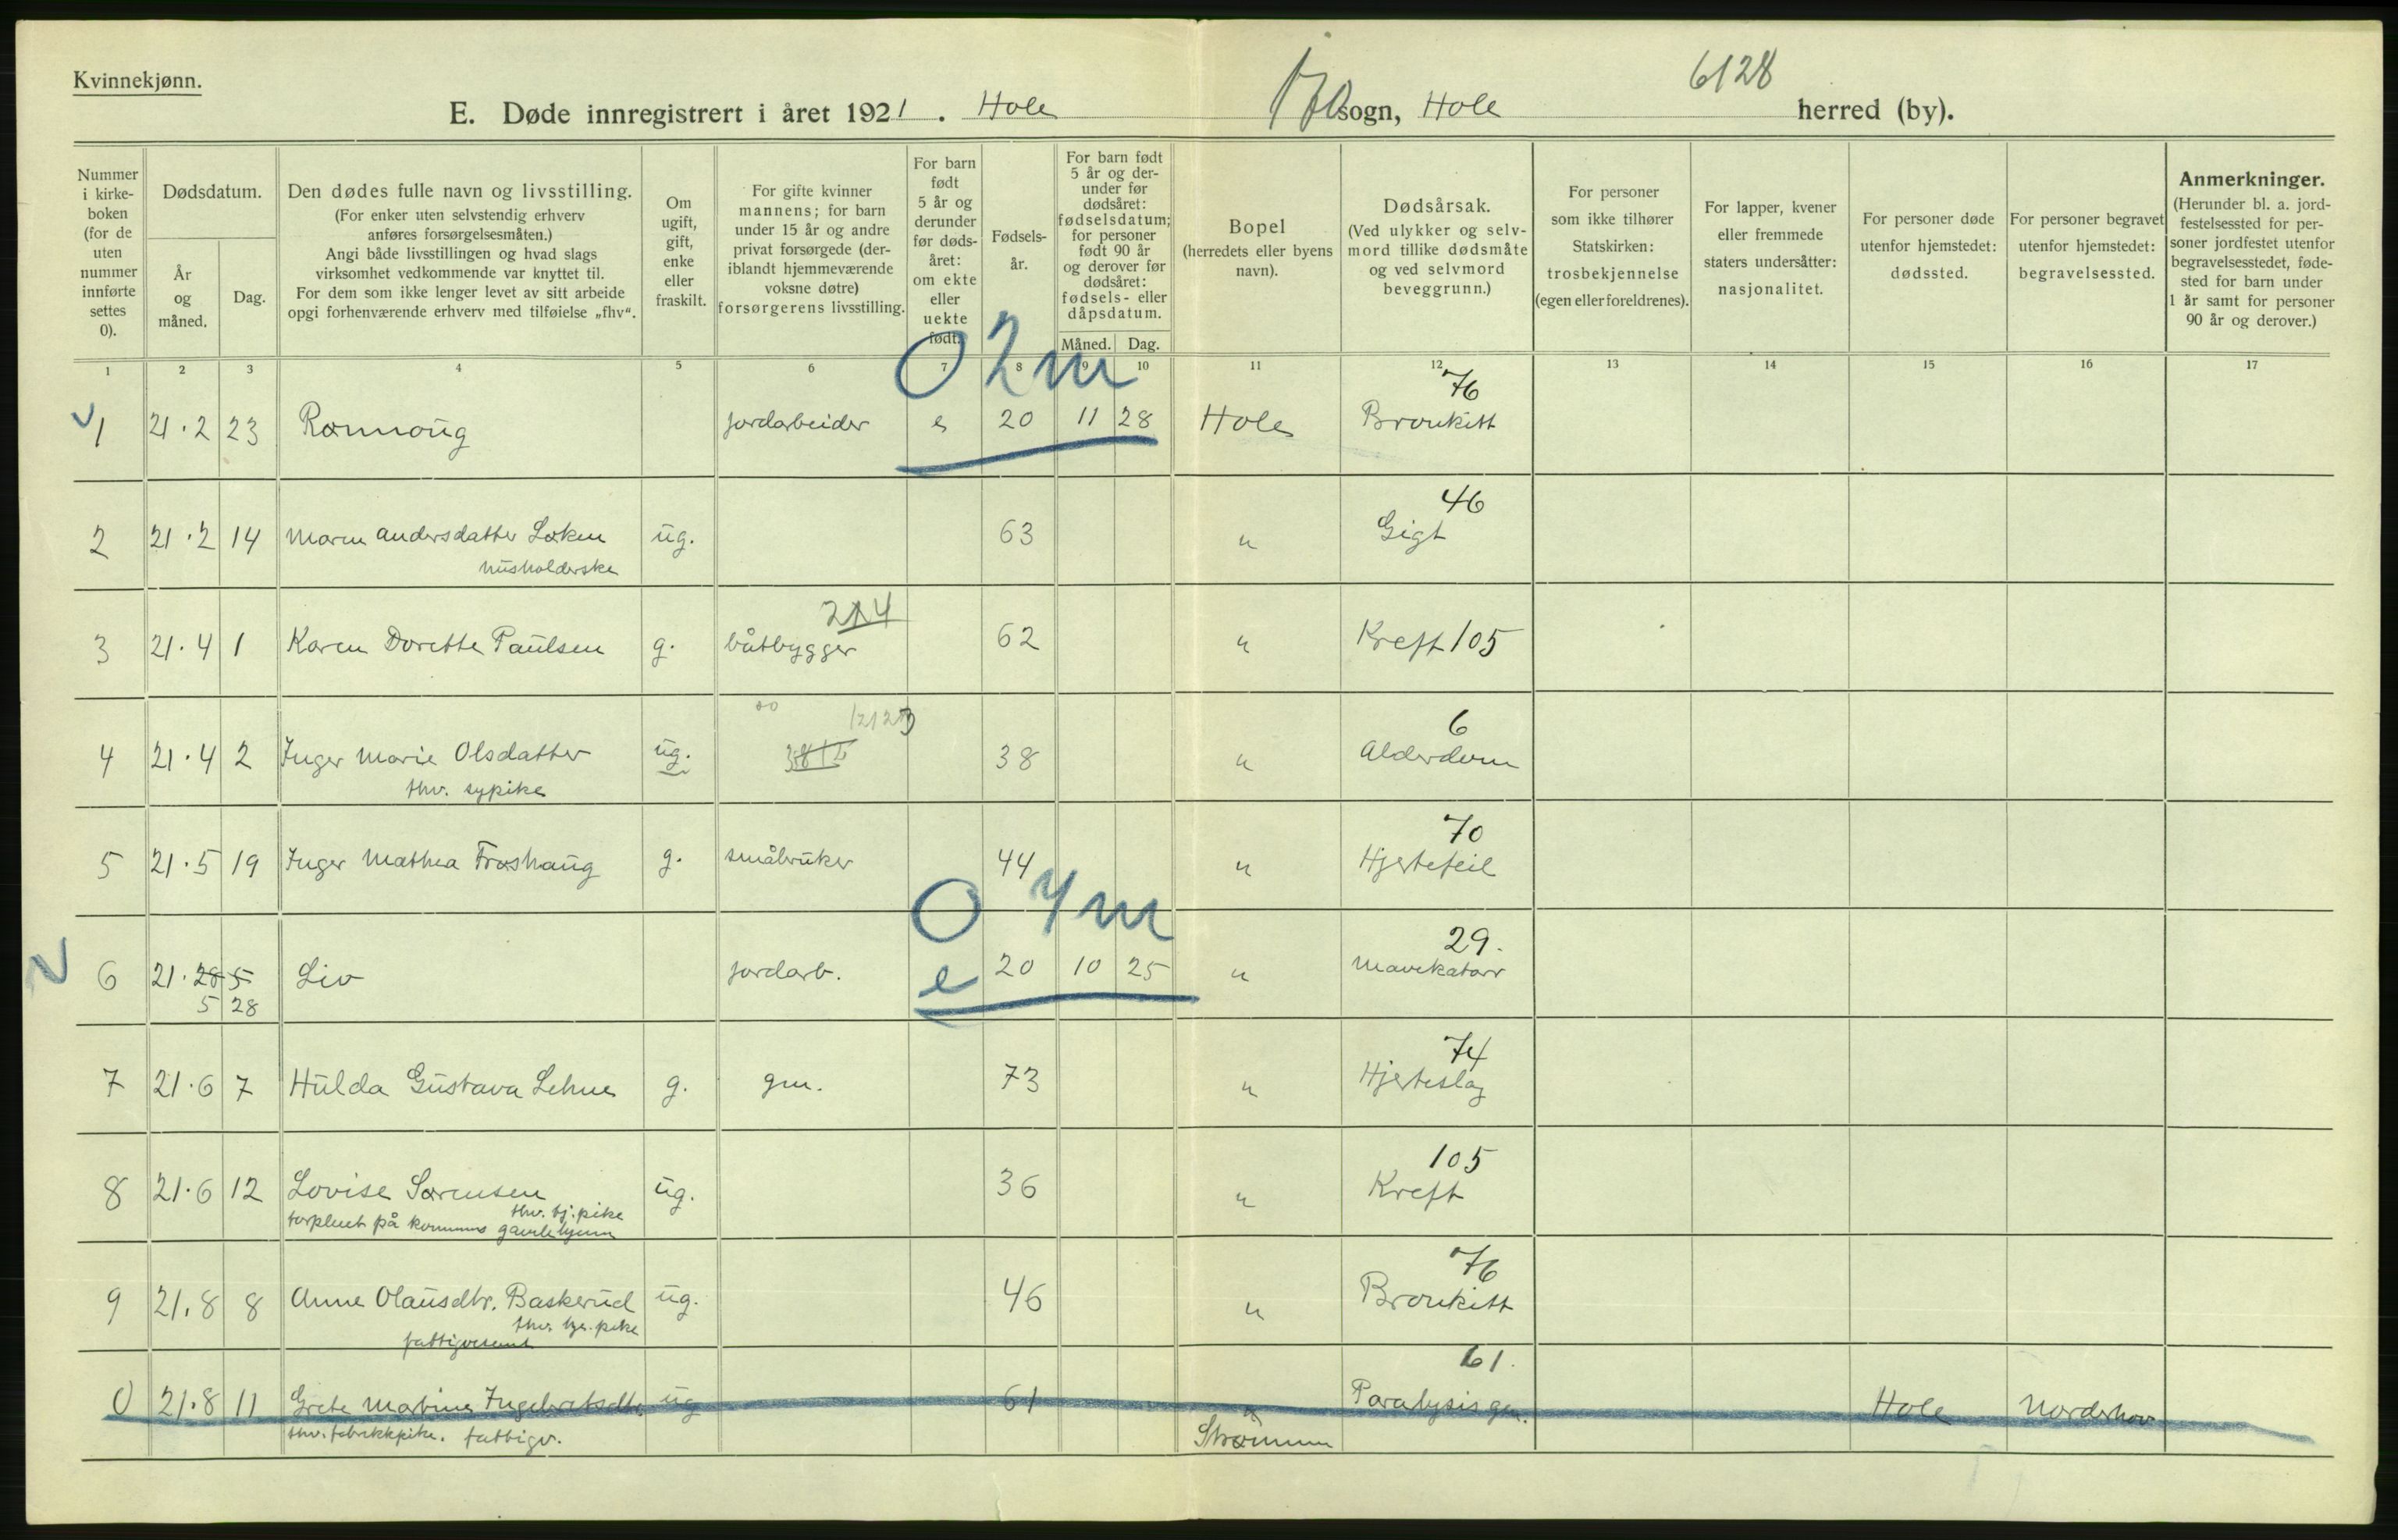 Kvinnekjønn.
E. Døde innregistrert i året 1921. Hole sogn, Hole herred (by).
170
6128
Nummer i kirke-boken (for de uten nummer innførte settes 0).
Dødsdatum.
År og måned.
Dag.
Den dødes fulle navn og livsstilling.
(For enker uten selvstendig erhverv anføres forsørgelsesmåten.)
Angi både livsstillingen og hvad slags virksomhet vedkommende var knyttet til.
For dem som ikke lenger levet av sitt arbeide opgi forhenværende erhverv med tilføielse „fhv“.
Om ugift, gift, enke eller fraskilt.
For gifte kvinner mannens; for barn under 15 år og andre privat forsørgede (deriblandt hjemmeværende voksne døtre) forsørgerens livsstilling.
For barn født 5 år og derunder før døds-året: om ekte eller uekte født.
Fødsels-år.
For barn født 5 år og der-under før dødsåret: fødselsdatum; for personer født 90 år og derover før dødsåret: fødsels- eller dåpsdatum.
Måned. Dag.
Bopel (herredets eller byens navn).
Dødsårsak. (Ved ulykker og selv-mord tillike dødsmåte og ved selvmord beveggrunn.)
For personer som ikke tilhører Statskirken: trosbekjennelse (egen eller foreldrenes).
For lapper, kvener eller fremmede staters undersåtter: nasjonalitet.
For personer døde utenfor hjemstedet: dødssted.
For personer begravet utenfor hjemstedet: begravelsessted.
Anmerkninger. (Herunder bl. a. jord-festelsessted for per-soner jordfestet utenfor begravelsesstedet, føde-sted for barn under 1 år samt for personer 90 år og derover.)
1 2 3 4 5 6 7 8 9 10 11 12 13 14 15 16 17
0 2 m
76
1 21.2 23 Rønnoug jordarbeider e 20 11 28 Hole Bronkitt
46
2 21.2 14 Maren Andersdatter Løken ug. 63 " Gigt
husholderske
214
3 21.4 1 Karen Dorette Paulsen g. båtbygger 62 " Kreft 105
6
4 21.4 2 Inger Marie Olsdatter ug. 38 " Alderdom
fhv. sypike
70
5 21.5 19 Inger Mathea Frøshaug g. småbruker 44 " Hjertefeil
0 7 m
29.
6 21.28 5 Liv jordarb. e 20 10 25 " Mavekatarr
5 28
74
7 21.6 7 Hulda Gustava Lehne g. gm. 73 " Hjerteslag
105
8 21.6 12 Lovise Sørensen ug. 36 " Kreft
fhv. tj.pike
forpleiet på kommuns gamlehjem
76
9 21.8 8 Anne Olausdtr. Baskerud ug. 46 " Bronkitt
fhv. tje.pike
fattigvesenet
61.
0 21.8 11 Grete Martine Ingebretsdtr. ug 61 " Paralysis gen. Hole Norderhov
fhv. fabrikkpike. fattigv. Strømmen